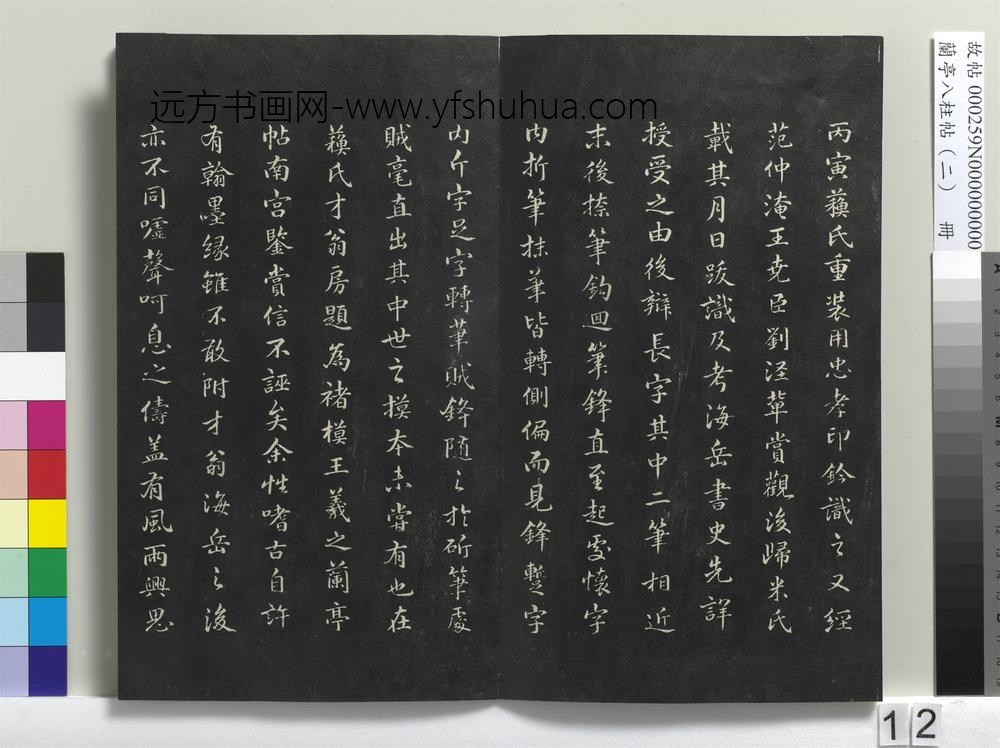 丙寅蘓氏重装用忠孝印鈐識之又經
范仲淹王尭臣劉涇軰賞觀後歸米氏
載其月日跋識及考海岳書史先詳
授受之由後辯長字其中二筆相近
末後捺筆鈎迴筆鋒直至起處懷字
内折筆抹筆皆轉側偏而見鋒蹔字
内斤字足字轉筆賊鋒随之於斫筆處
賊毫直出其中世之摸本未嘗有也在
蘓氏才翁房題為褚模王羲之蘭亭
帖南宫鑒賞信不誣矣余性嗜古自許
有翰墨縁雖不敢附才翁海岳之後
亦不同嘘聲呵息之儔盖有風雨興思
远方书画网-www.yfshuhua.com
故帖 000259N000000000
蘭亭八柱帖(二) 冊
12